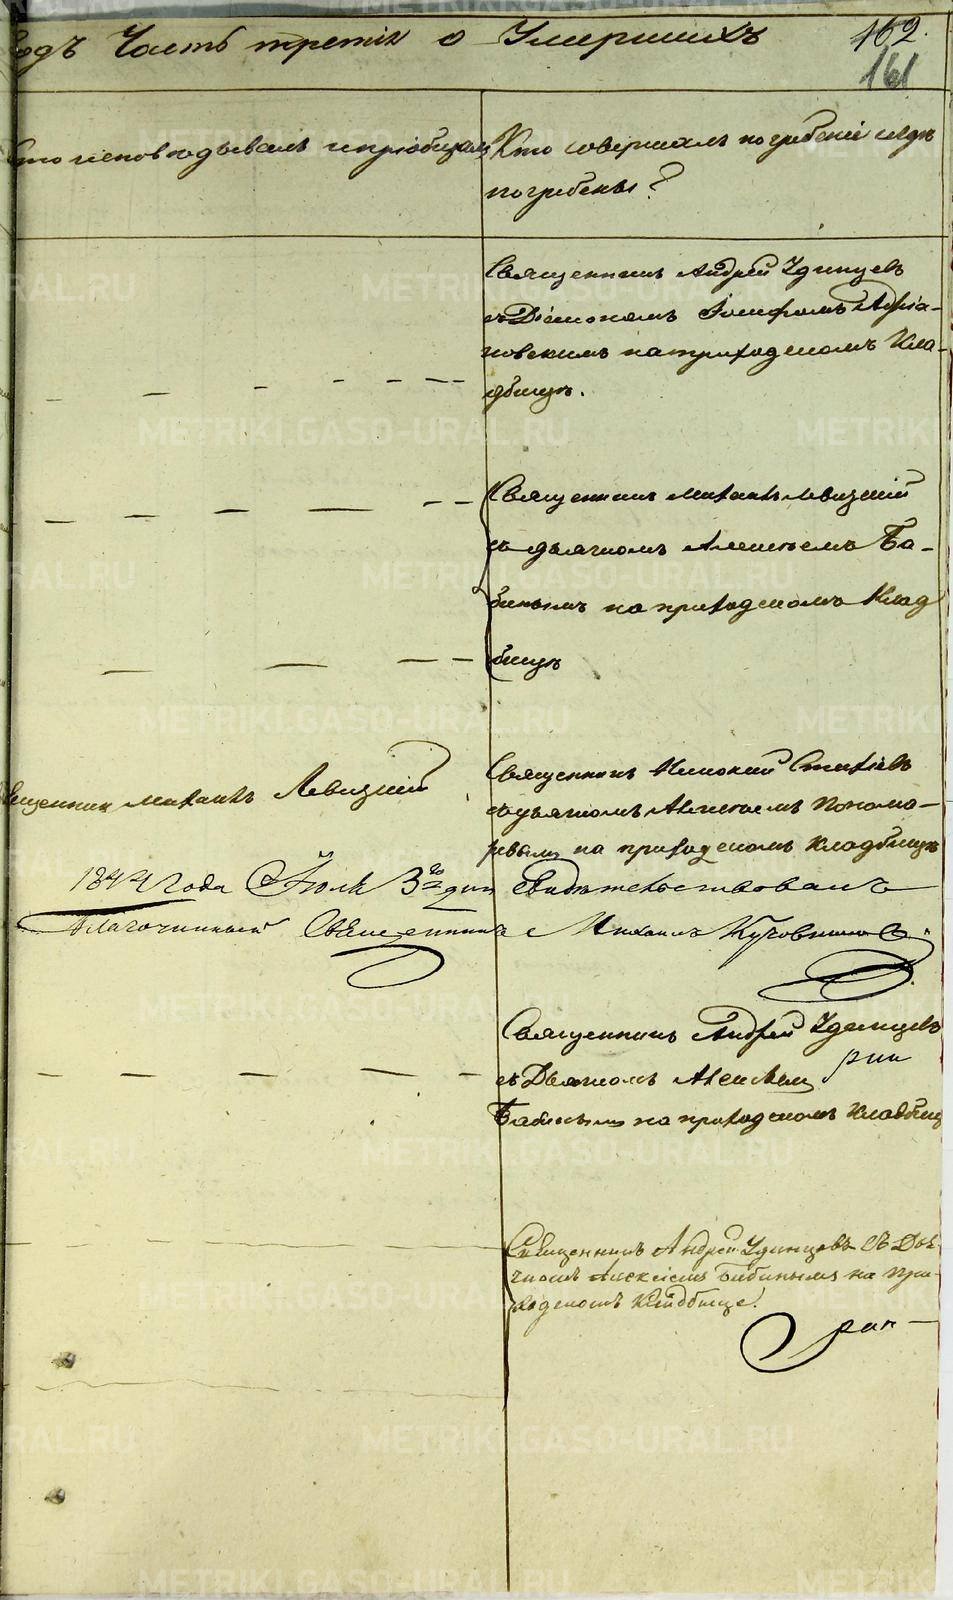 годъ Часть третія о Умершихъ 162.
161
Кто исповѣдывалъ и пріобщалъ
Кто совершалъ погребеніе и гдѣ
погребены?
Священникъ Андрей Удинцевъ
съ Діакономъ Іосифомъ
новскимъ на приходскомъ Кла-
дбищѣ.
Священникъ Михаилъ Левицкій
съ дьячкомъ Алексѣемъ Ба-
бинымъ на приходскомъ Клад
бищѣ
Священник Михаилъ Левицкій
Священникъ
съ дьячкомъ Алексѣемъ Понома-
ревымъ на приходскомъ кладбищѣ
1844 года Іюля 3го дня свидѣтельствовалъ
Благочинный Священникъ Михаилъ
Священникъ Андрей Удинцевъ
съ Дьячкомъ Алексѣем
Бабинымъ на приходскомъ кладбищ
Священникъ Андрей Удинцовъ съ Дья
чкомъ Алексѣемъ Бабинымъ на При-
ходскомъ Кладбище.
METRIKI.GASO-URAL.RU